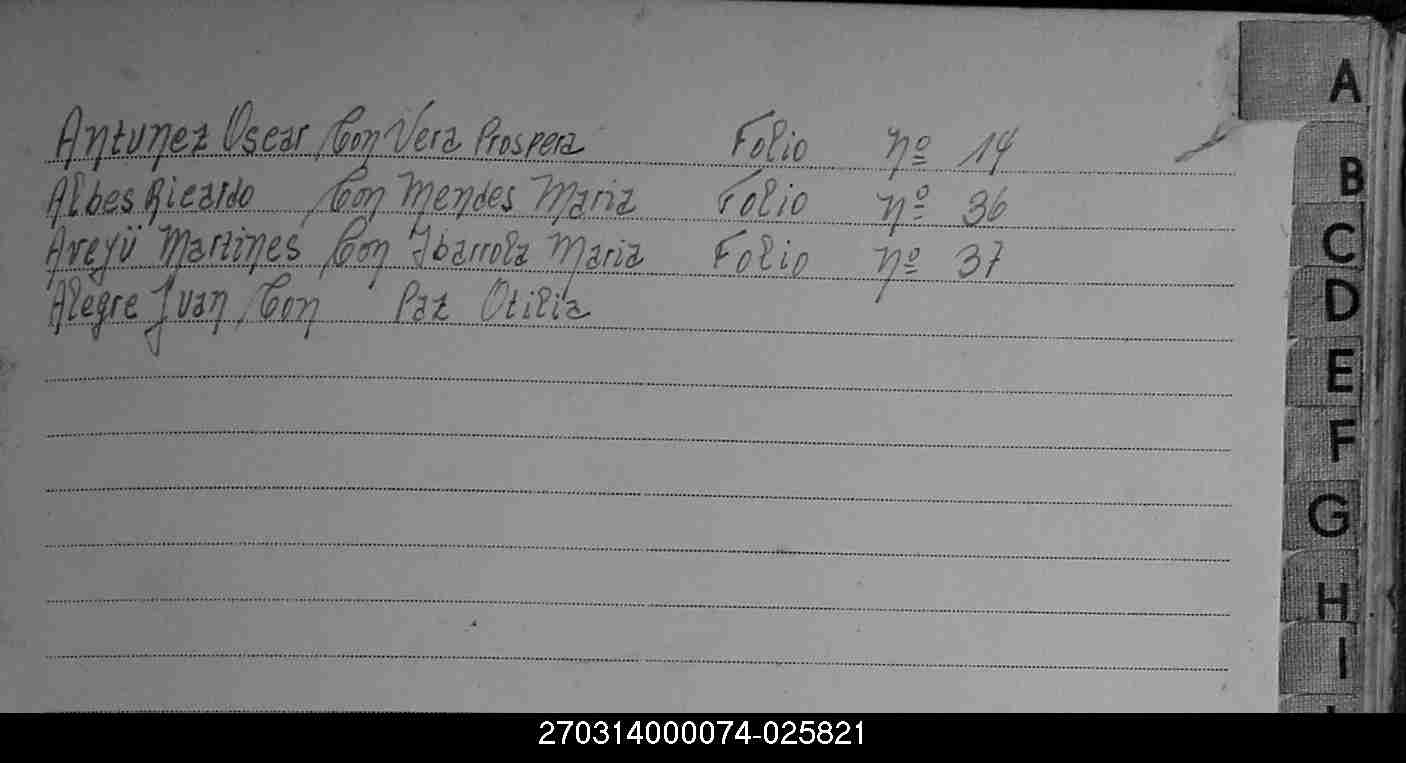 Antunez Oscar Con Vera Prospera Folio nº 14
Albes Ricardo Con Mendes Maria Folio nº 36
Aveyü Martines Con Ibarrola Maria Folio nº 37
Alegre Juan Con Paz Otilia
A
B
C
D
E
F
G
H
I
270314000074-025821